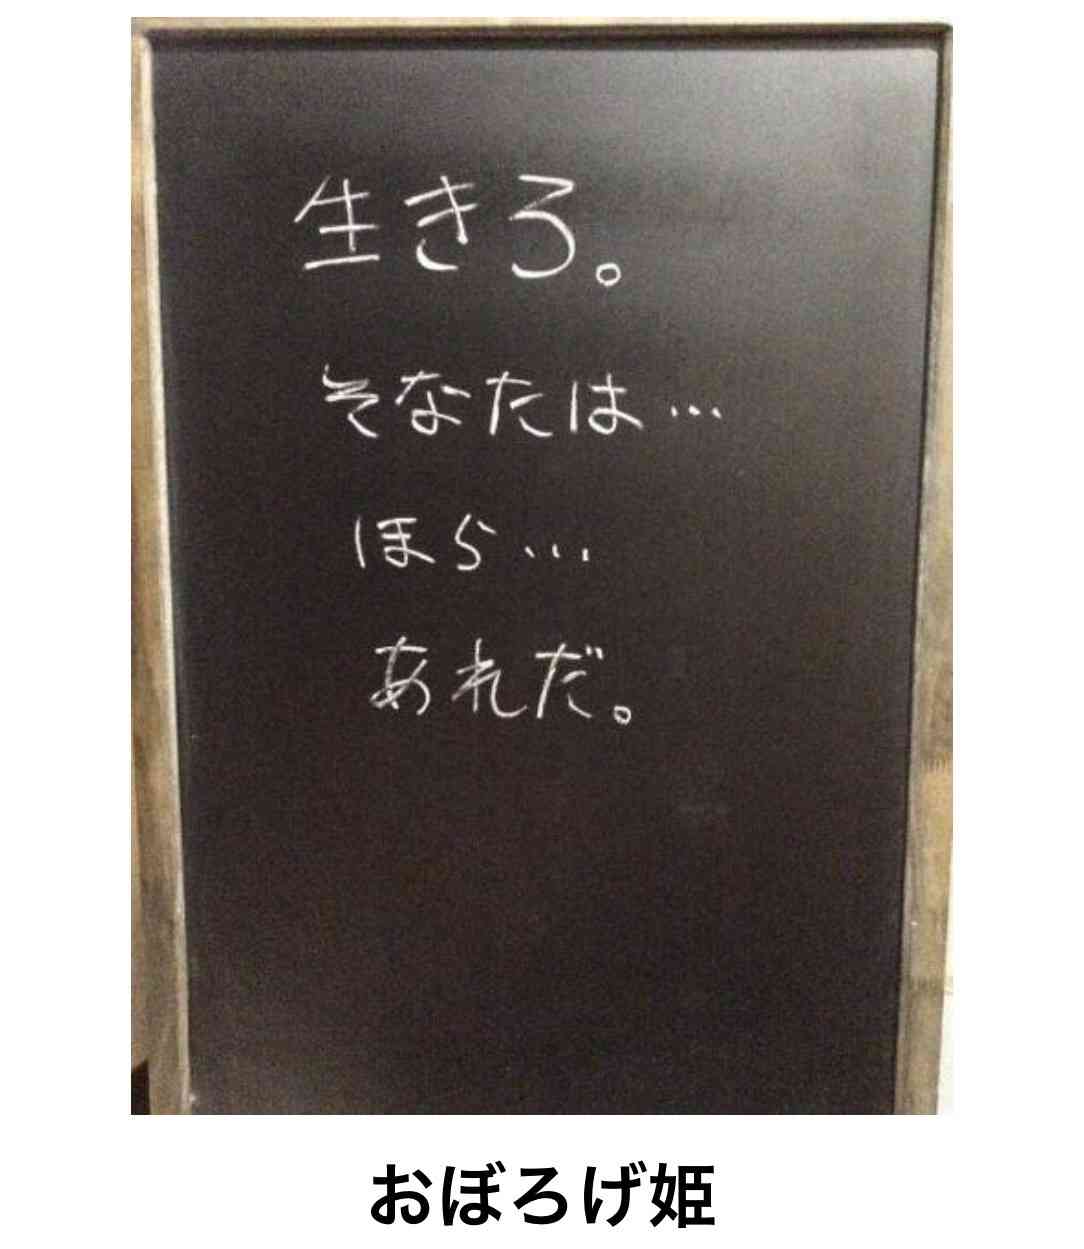 生きろ。
そなたは…
ほら…
あれだ。
おぼろげ姫